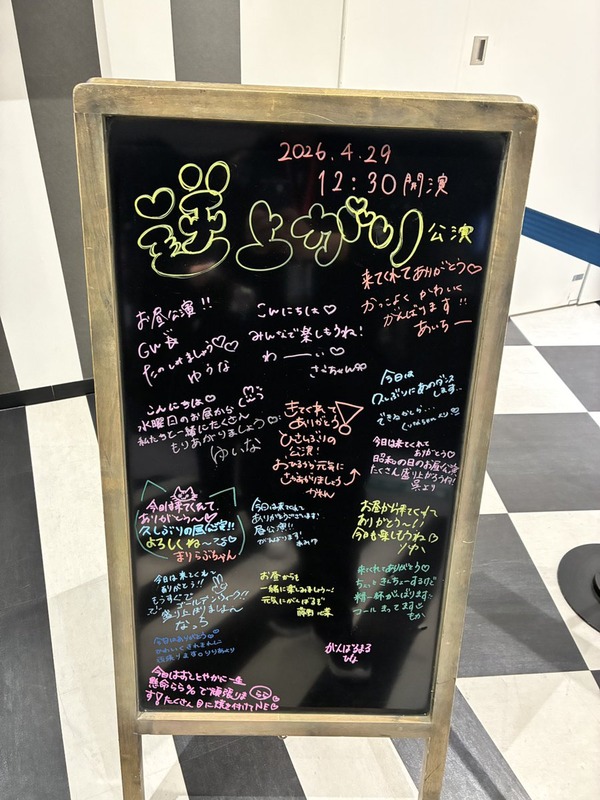 2026.4.29
12:30開演
逆上がり公演
来てくれてありがとう♡
かっこよく かわいく
がんばります!!
あいちー
お昼公演!!
GW 長
たのしみましょう♡♡
ゆうな
こんにちは♡
みんなで楽しもうね!
わーーい♡
さこちゃん
今日は
久しぶりにあのダンス
します…
できるかしか…
こんにちは♡
水曜日のお昼から
私たちと一緒にたくさん
もりあがりましょう♡
ゆいな
きてくれて
ありがとう
ひさしぶりの
公演!
おひるから元気に
さかあがりましょう
かれん
今日は来てくれて
ありがとう♡
昭和の日のお昼公演
たくさん盛り上がろうね!
呉より
今日は来てくれて
ありがとう〜♡
久しぶりの昼公演!!
よろしくね〜
まりらぶちゃん
今日は来てくれて
ありがとうございます!
昼公演!!
がんばります!
お昼から来てくれて
ありがとう〜!!
今日も楽しもうね
今日は来てくれて
ありがとう!!
もうすぐ
ゴールデンウィーク!!
で!
盛り上がりましょ〜
なっち
お昼からも
一緒に楽しみましょう〜!
元気にがんばるぞ
来てくれてありがとう♡
ちょいときんちょーするけど
精一杯がんばります!!
コール まってます
もか
今日はありがとう
がんばるまる
ひな
今日はおしとやかに一生
懸命らら%で頑張りま
す!たくさん目に焼き付けてNE